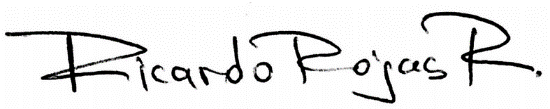 Ricardo Rojas R.